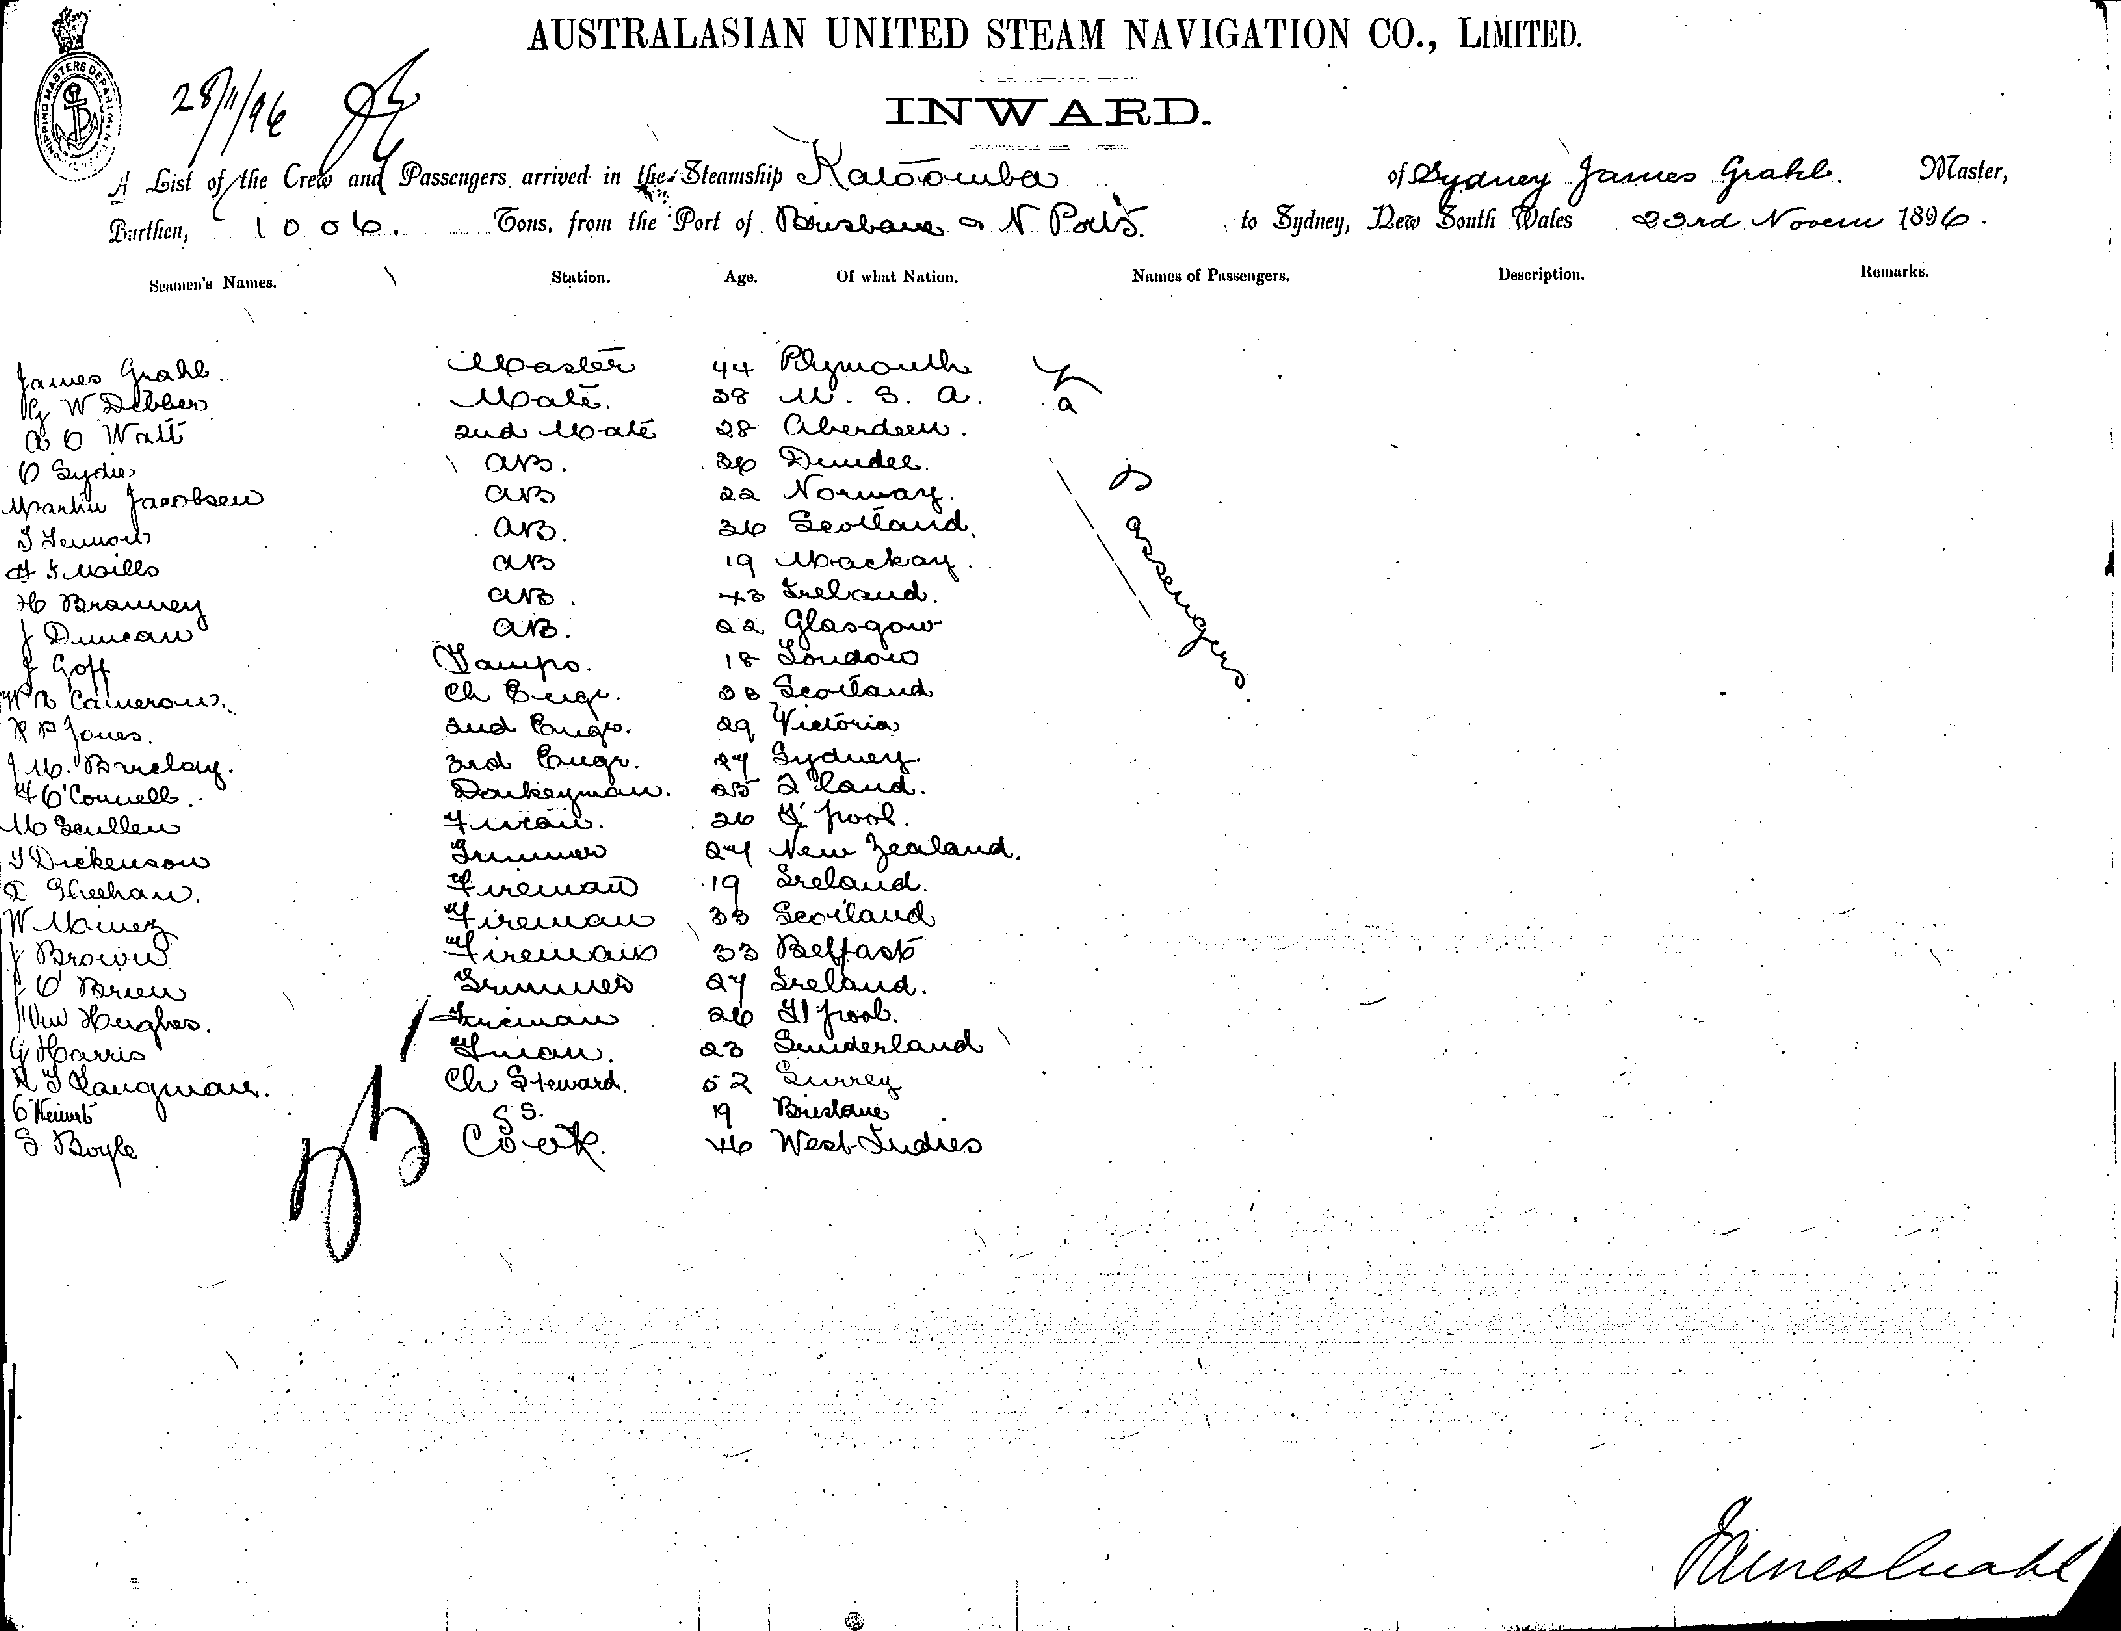 AUSTRALASIAN UNITED STEAM NAVIGATION CO., LIMITED.
SHIPPING MASTERS DEPARTMENT
28/11/96
INWARD.
A List of the Crew and Passengers arrived in the Steamship Katoomba of Sydney James Grahl. Master,
Burthen, 1006. Tons, from the Port of Brisbane & N Ports. to Sydney, New South Wales 23rd Novem 1896.
Seamen's Names. Station. Age. Of what Nation. Names of Passengers. Description. Remarks.
James Grahl. Master 44 Plymouth
W Debber Mate. 38 U. S. A.
Watt 2nd Mate 28 Aberdeen.
AB. 36 Dundee.
Martin Jacobsen AB 22 Norway.
AB. 36 Scotland.
Mills AB 19 Mackay.
H Branney AB. 43 Ireland.
J Duncan AB. 22 Glasgow
J Goff Lamps. 18 London
Cameron. Ch Engr. 33 Scotland
Jones. 2nd Engr. 29 Victoria
J M. 3rd Engr. 27 Sydney.
O'Connell. Donkeyman. 25 Q'land.
M Scullen F'man. 26 L'pool.
T Dickenson Trimmer 27 New Zealand.
Sheehan. Fireman 19 Ireland.
W Fireman 33 Scotland
J Brown Fireman 33 Belfast
J O'Brien Trimmer 27 Ireland.
Wm Hughes. Fireman 26 L'pool.
G Harris F'man. 23 Sunderland
Langman. Ch Steward. 52 Surrey
S S. 19 Brisbane
S Boyle Cook. 46 West Indies
Passengers
James Grahl